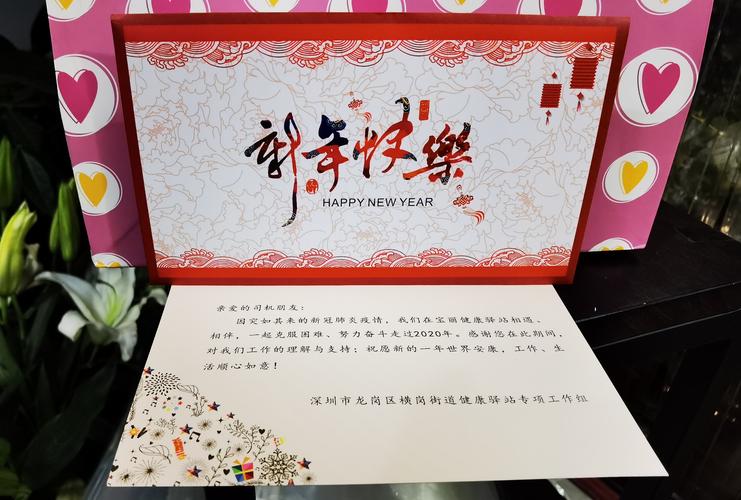 新年快樂
HAPPY NEW YEAR
亲爱的司机朋友：
因突如其来的新冠肺炎疫情，我们在宝丽健康驿站相遇、
相伴，一起克服困难、努力奋斗走过2020年。感谢您在此期间，
对我们工作的理解与支持；祝愿新的一年世界安康，工作、生
活顺心如意！
深圳市龙岗区横岗街道健康驿站专项工作组